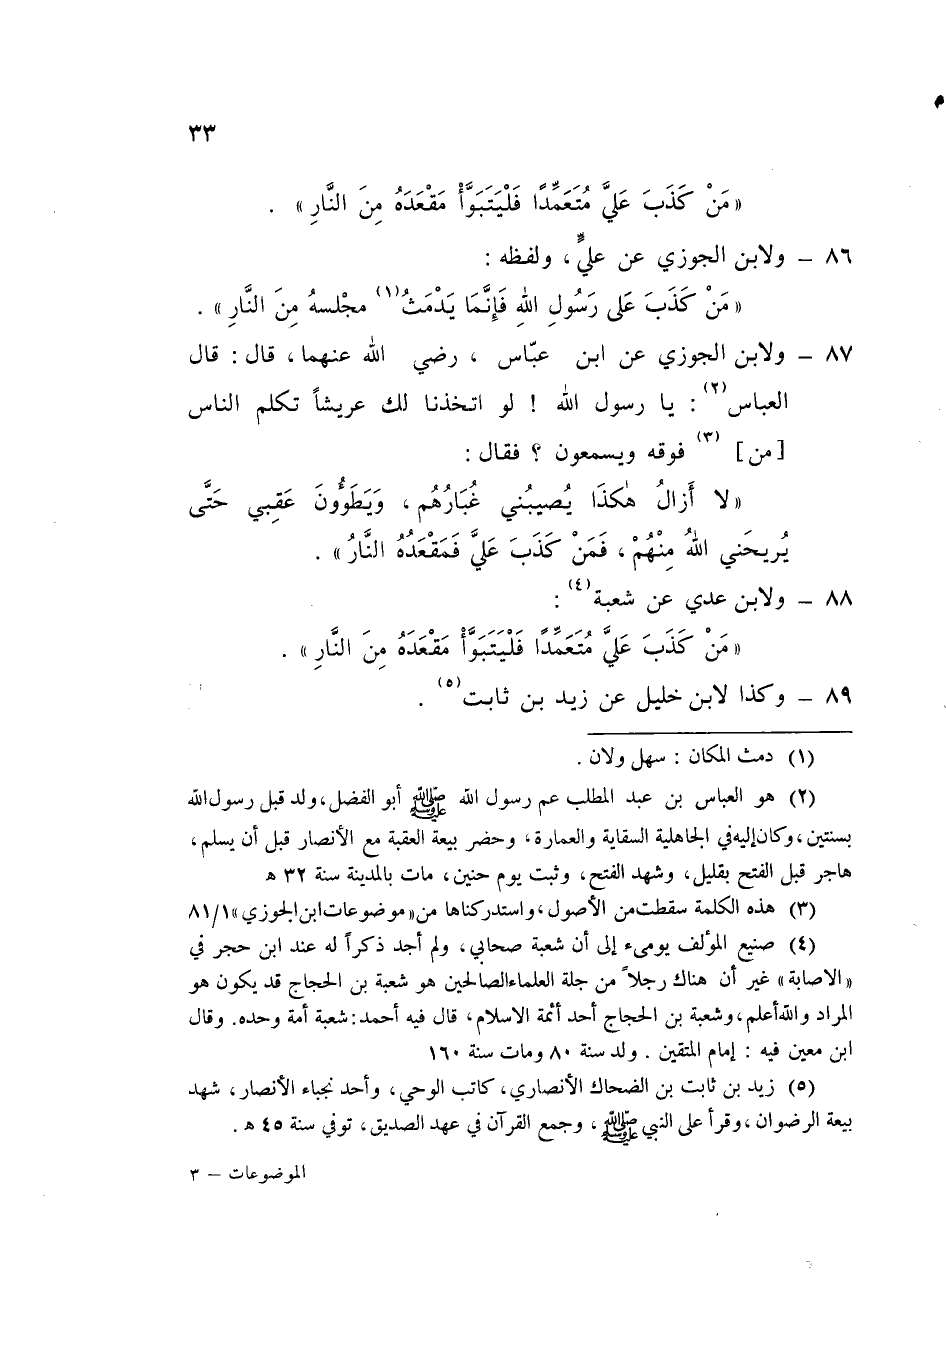 ٣٣
« مَنْ كَذَبَ عَلَيَّ مُتَعَمِّدًا فَلْيَتَبَوَّأْ مَقْعَدَهُ مِنَ النَّارِ » .
٨٦ – ولابن الجوزي عن عليٍّ ، ولفظه :
« مَنْ كَذَبَ عَلى رَسُولِ اللهِ فَإِنَّمَا يَدْمَثُ(١) مجْلسهُ مِنَ النَّارِ » .
٨٧ – ولابن الجوزي عن ابن عبّاس ، رضي الله عنهما ، قال : قال
العباس(٢) : يا رسول الله ! لو اتخذنا لك عريشاً تكلم الناس
[من] (٣) فوقه ويسمعون ؟ فقال :
« لا أَزالُ هٰكَذَا يُصيبُني غُبَارُهُم ، وَيَطَؤُونَ عَقِبي حَتَّى
يُريحَني اللهُ مِنْهُمْ ، فَمَنْ كَذَبَ عَلَيَّ فَمَقْعَدُهُ النَّارُ » .
٨٨ – ولابن عدي عن شعبة(٤) :
« مَنْ كَذَبَ عَلَيَّ مُتَعَمِّدًا فَلْيَتَبَوَّأْ مَقْعَدَهُ مِنَ النَّارِ » .
٨٩ – وكذا لابن خليل عن زيد بن ثابت(٥) .
(١) دمث المكان : سهل ولان .
(٢) هو العباس بن عبد المطلب عم رسول الله ﷺ أبو الفضل ، ولد قبل رسول الله
بسنتين ، وكان إليه في الجاهلية السقاية والعمارة ، وحضر بيعة العقبة مع الأنصار قبل أن يسلم ،
هاجر قبل الفتح بقليل ، وشهد الفتح ، وثبت يوم حنين ، مات بالمدينة سنة ٣٢ ه
(٣) هذه الكلمة سقطت من الأصول ، واستدركناها من « موضوعات ابن الجوزي » ٨١/١
(٤) صنيع المؤلف يومىء إلى أن شعبة صحابي ، ولم أجد ذكراً له عند ابن حجر في
« الاصابة » غير أن هناك رجلاً من جلة العلماء الصالحين هو شعبة بن الحجاج قد يكون هو
المراد والله أعلم ، وشعبة بن الحجاج أحد أئمة الاسلام ، قال فيه أحمد : شعبة أمة وحده . وقال
ابن معين فيه : إمام المتقين . ولد سنة ٨٠ ومات سنة ١٦٠
(٥) زيد بن ثابت بن الضحاك الأنصاري ، كاتب الوحي ، وأحد نجباء الأنصار ، شهد
بيعة الرضوان ، وقرأ على النبي ﷺ ، وجمع القرآن في عهد الصديق ، توفي سنة ٤٥ ه .
الموضوعات – ٣